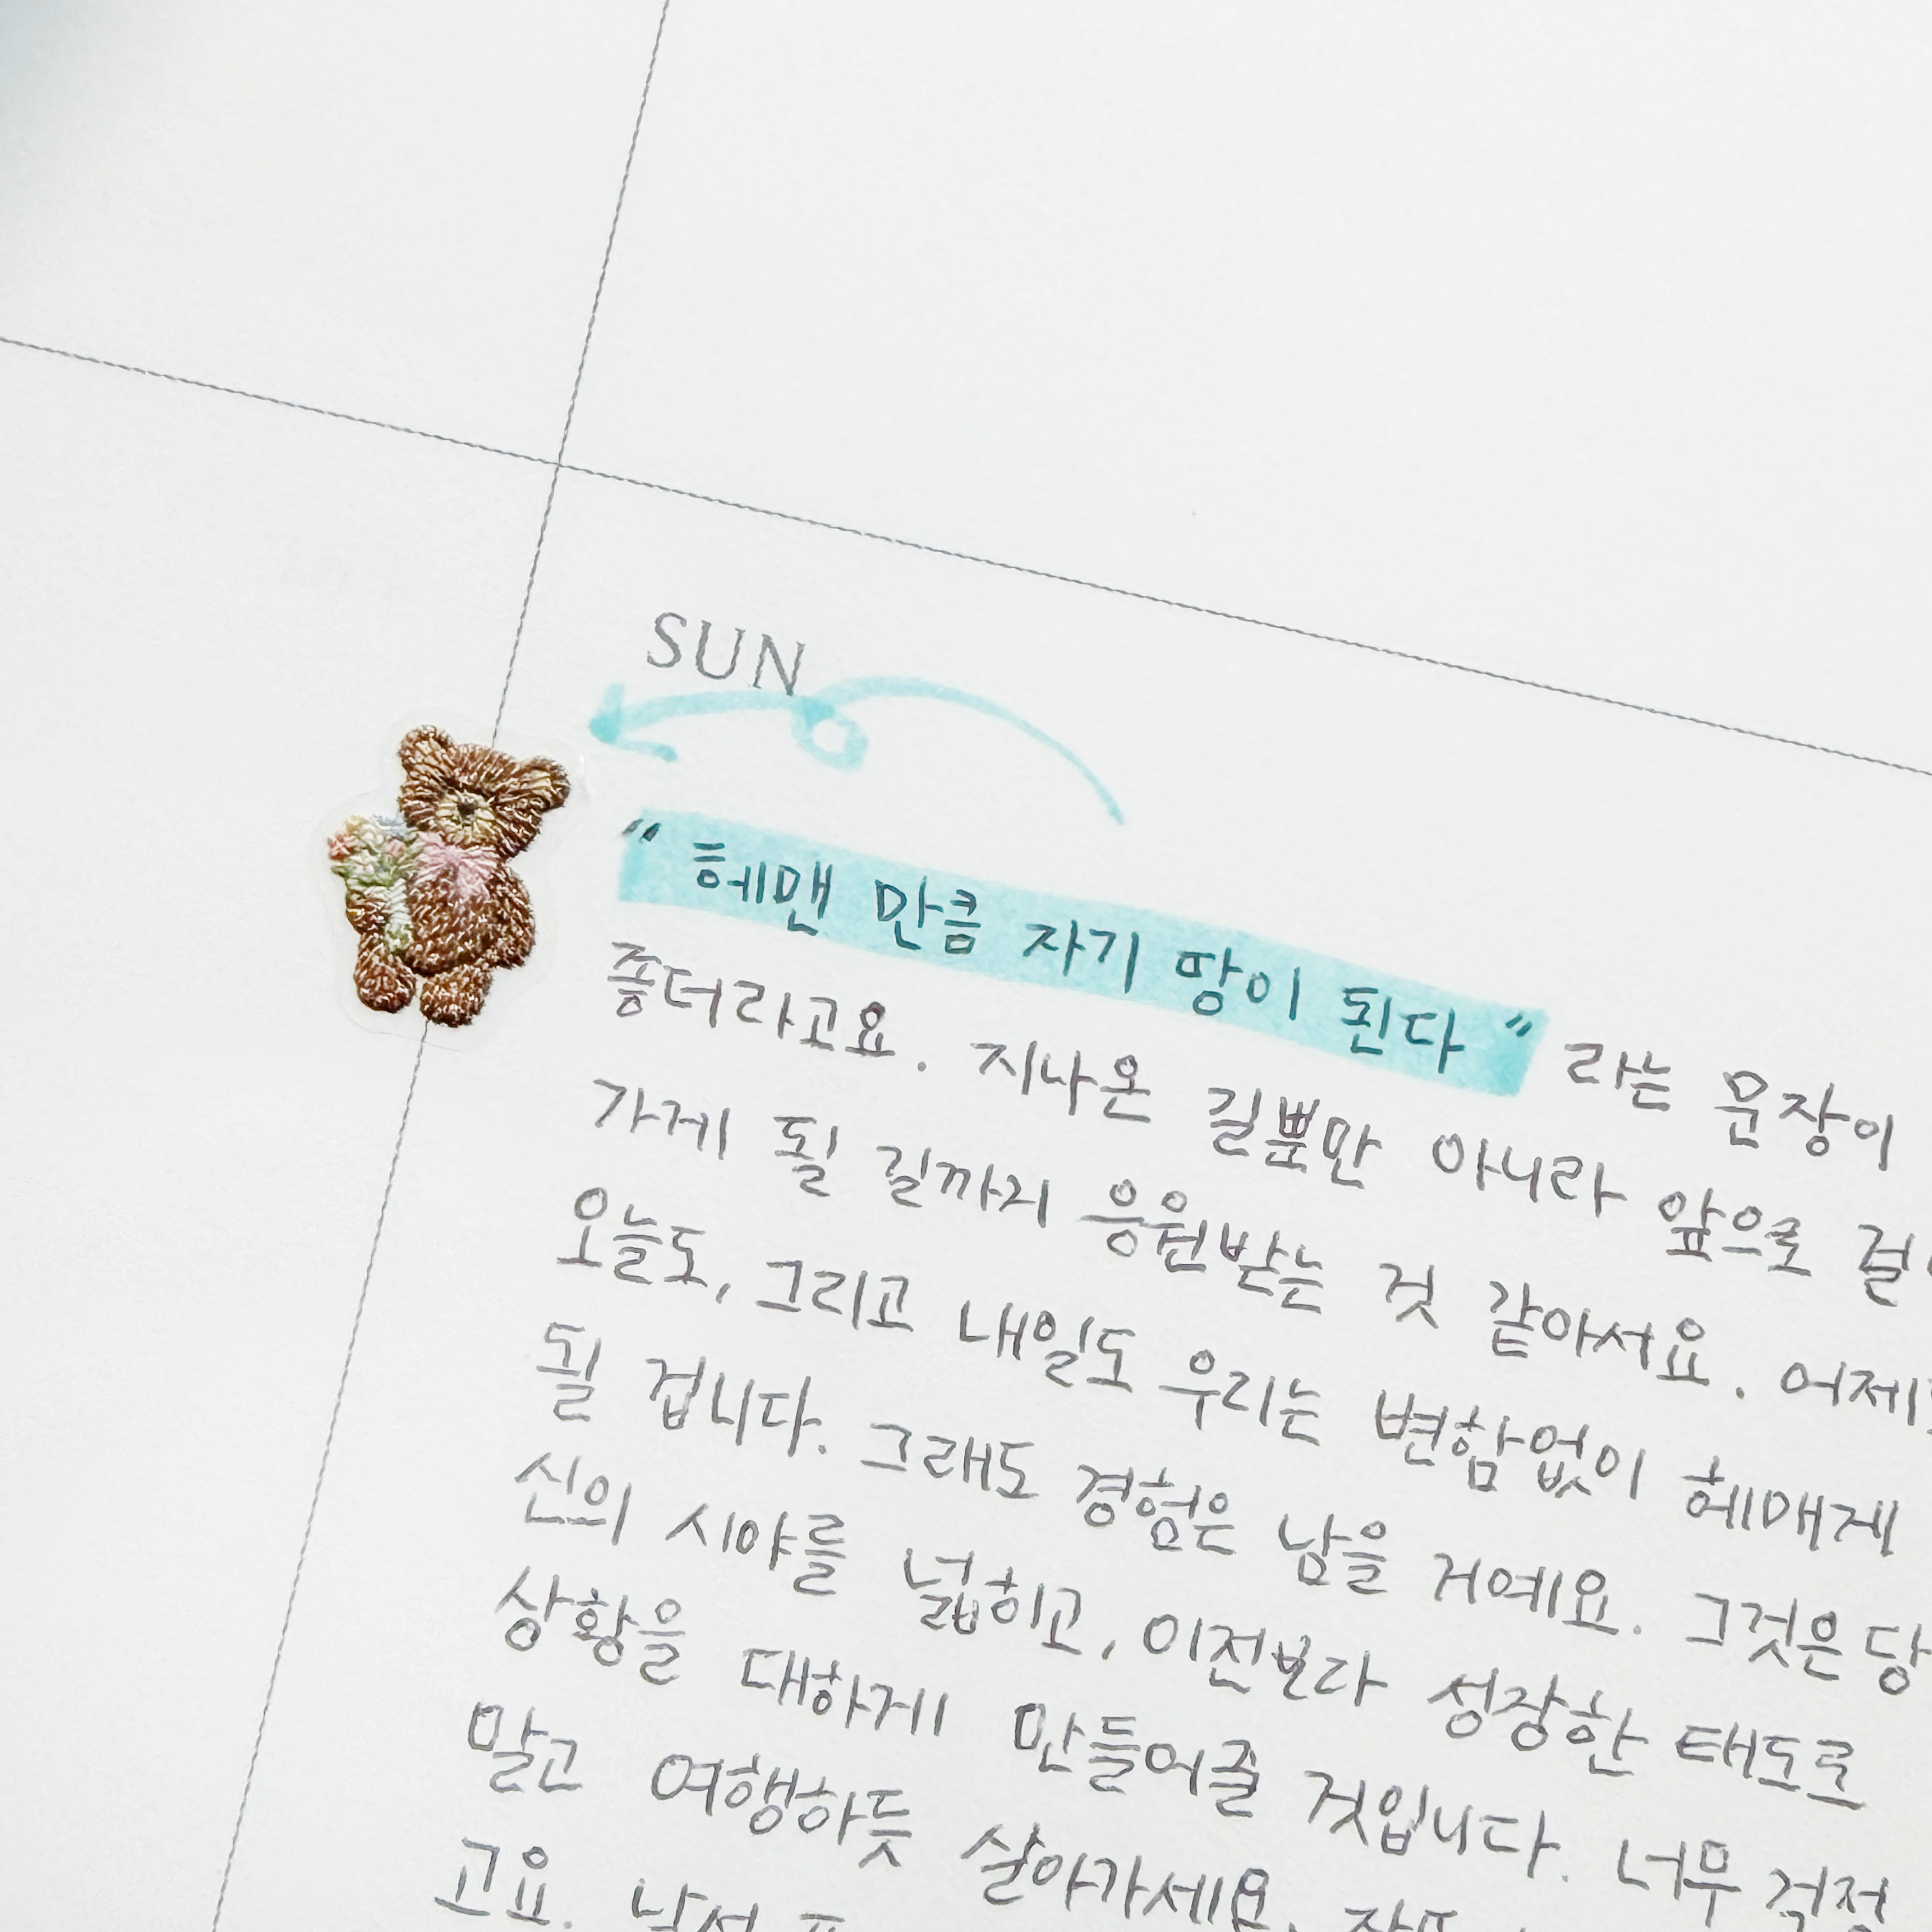 SUN
" 헤맨 만큼 자기 땅이 된다 " 라는 문장이
좋더라고요. 지나온 길뿐만 아니라 앞으로
가게 될 길까지 응원받는 것 같아서요. 어제
오늘도, 그리고 내일도 우리는 변함없이 헤매게
될 겁니다. 그래도 경험은 남을 거예요. 그것은 당
신의 시야를 넓히고, 이전보다 성장한 태도로
상황을 대하게 만들어줄 것입니다. 너무 걱정
말고 여행하듯 살아가세요.
고요.